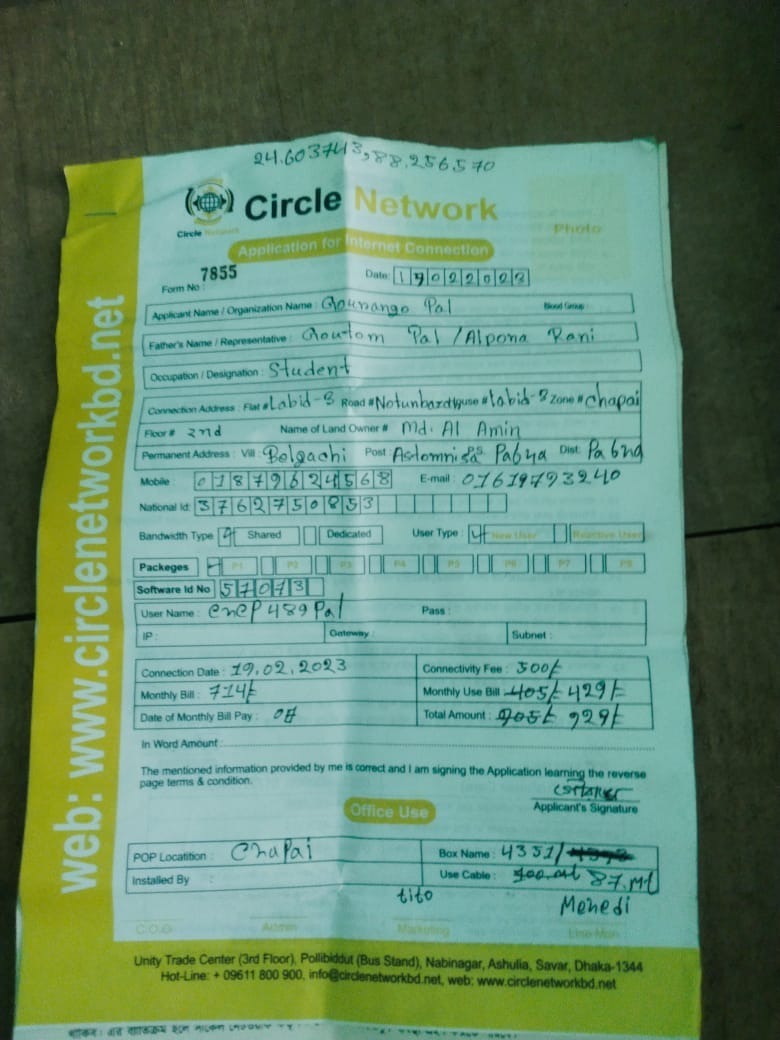 24.603743,88.256570
Circle Network
Circle Network
Application for Internet Connection
Photo
Form No : 7855
Date: 19022023
Applicant Name / Organization Name : Gourango Pal Blood Group :
Father's Name / Representative : Goutom Pal / Alpona Rani
Occupation / Designation : Student
Connection Address : Flat # Labid-3 Road # Notunbazar House # labid-3 Zone # chapai
Floor # 2nd Name of Land Owner # Md. Al Amin
Permanent Address : Vill : Belgachi Post : P.S. Pabna Dist: Pabna
Mobile : 01879624568 E-mail : 01619793240
National Id: 3762750853
Bandwidth Type Shared Dedicated User Type : New User Reactive User
Packeges P1 P2 P3 P4 P5 P6 P7 P8
Software Id No 57073
User Name : CNCP489Pal Pass :
IP : Gateway : Subnet :
Connection Date : 19.02.2023 Connectivity Fee : 500/-
Monthly Bill : 714/- Monthly Use Bill 405/- 429/-
Date of Monthly Bill Pay : Total Amount : 905/- 929/-
In Word Amount :
The mentioned information provided by me is correct and I am signing the Application learning the reverse
page terms & condition.
Applicant's Signature
Office Use
POP Locatition : Chapai Box Name : 4351/
Installed By : Use Cable : 87.Mt
tito Mehedi
C.O.O Admin Marketing Line Man
Unity Trade Center (3rd Floor), Pollibiddut (Bus Stand), Nabinagar, Ashulia, Savar, Dhaka-1344
Hot-Line: + 09611 800 900, info@circlenetworkbd.net, web: www.circlenetworkbd.net
web: www.circlenetworkbd.net